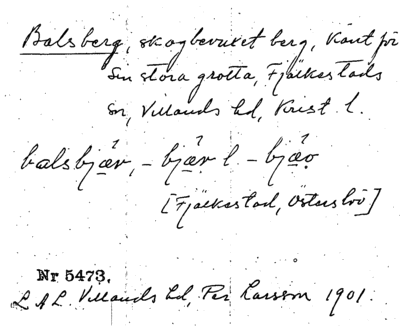 Balsberg, skogbevuxet berg, känt för
sin stora grotta, Fjälkestads
sn, Villands hd, Krist. l.
balsbjæ̱r, – bjæ̱r l – bjæ̱r
[Fjälkestad, Österslöv]
Nr 5473.
L A L Villands hd, Per Larsson 1901.